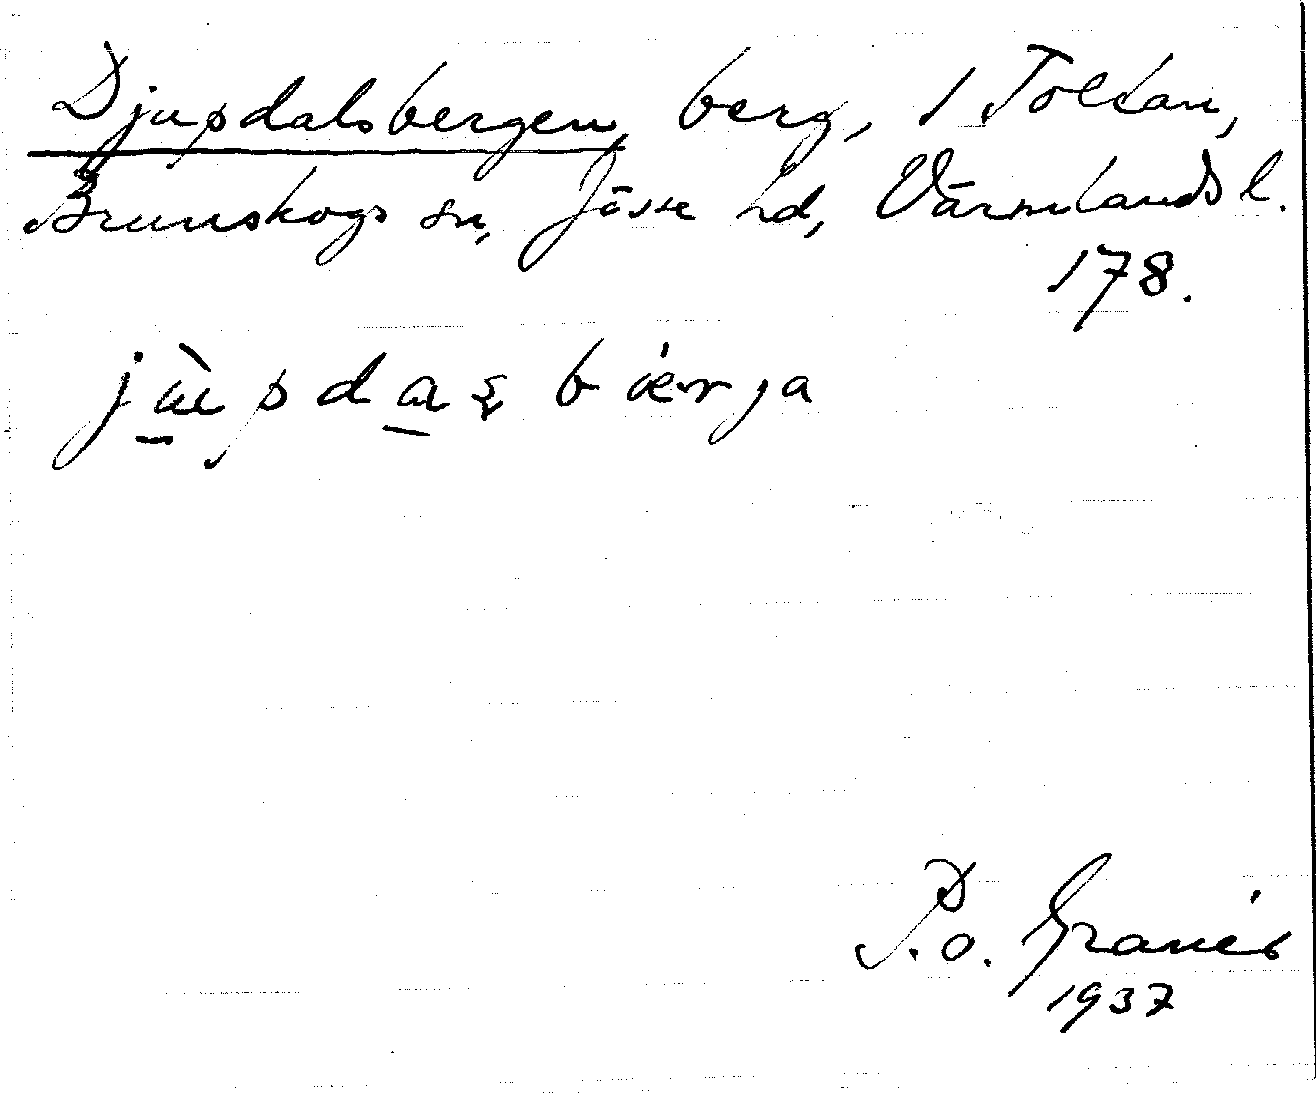 Djupdalsbergen, berg, 1 Tolkan,
Brunskogs sn, Jösse hd, Värmlands l.
178.
P. o. Granér
1937